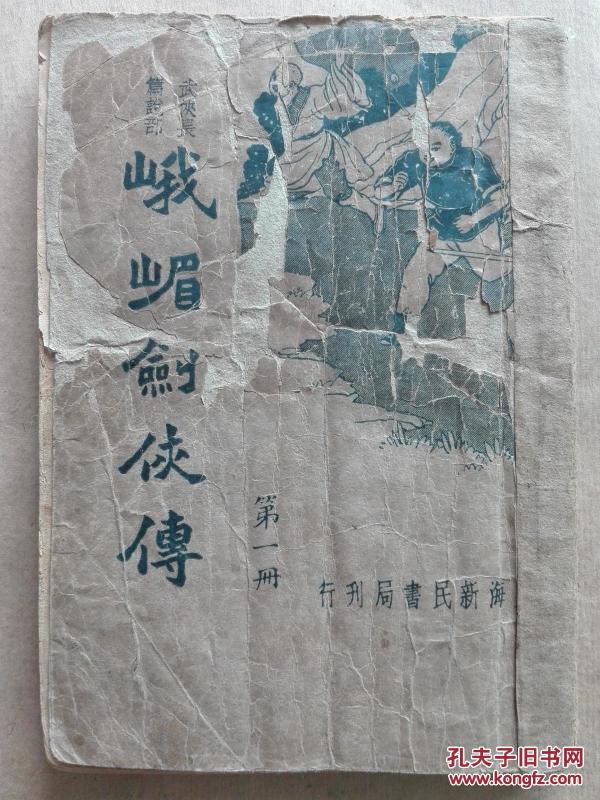 武俠長
篇說部
峨嵋劍俠傳
第一冊
海新民書局刊行
孔夫子旧书网
www.kongfz.com